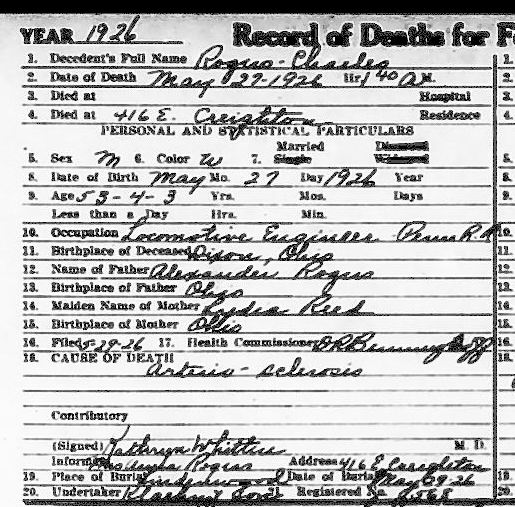 YEAR 1926 Record of Deaths for F
1. Decedent's Full Name Rogus - Charles
2. Date of Death May 27-1926 Hr 1 40 A M.
3. Died at Hospital
4. Died at 416 E. Creighton Residence
PERSONAL AND STATISTICAL PARTICULARS
Married
5. Sex M 6. Color W 7. Single Widowed
8. Date of Birth May Mo. 27 Day 1926 Year
9. Age 53-4-3 Yrs. Mos. Days
Less than a Day Hrs. Min.
10. Occupation Locomotive Engineer Penn R.R.
11. Birthplace of Deceased Dixon, Ohio
12. Name of Father Alexander Rogus
13. Birthplace of Father Ohio
14. Maiden Name of Mother Lydia Reed
15. Birthplace of Mother Ohio
16. Filed 5-29-26 17. Health Commissioner
18. CAUSE OF DEATH
Arterio-sclerosis
Contributory
(Signed) Kathryn Whitten M. D.
Informant Rogus Address 416 E Creighton
19. Place of Burial Lindenwood Date of Burial May 29-26
20. Undertaker Sons 21. Registered No.